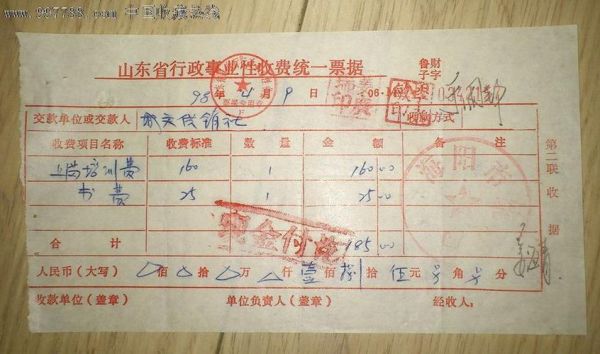 www.997788.com 中国收藏热线
山东省行政事业性收费统一票据
鲁财
子字
98年4月9日
06-1
收款方式
交款单位或交款人 供销社
收费项目名称 收费标准 数量 金额 备注
上岗培训费 160 1 160.00
书费 25 1 25.00
合计 185.00
现金付讫
海阳市
人民币(大写) 佰 拾 万 仟 壹佰 捌拾 伍元 角 分
收款单位(盖章) 单位负责人(盖章) 经收人:
第二联 收据